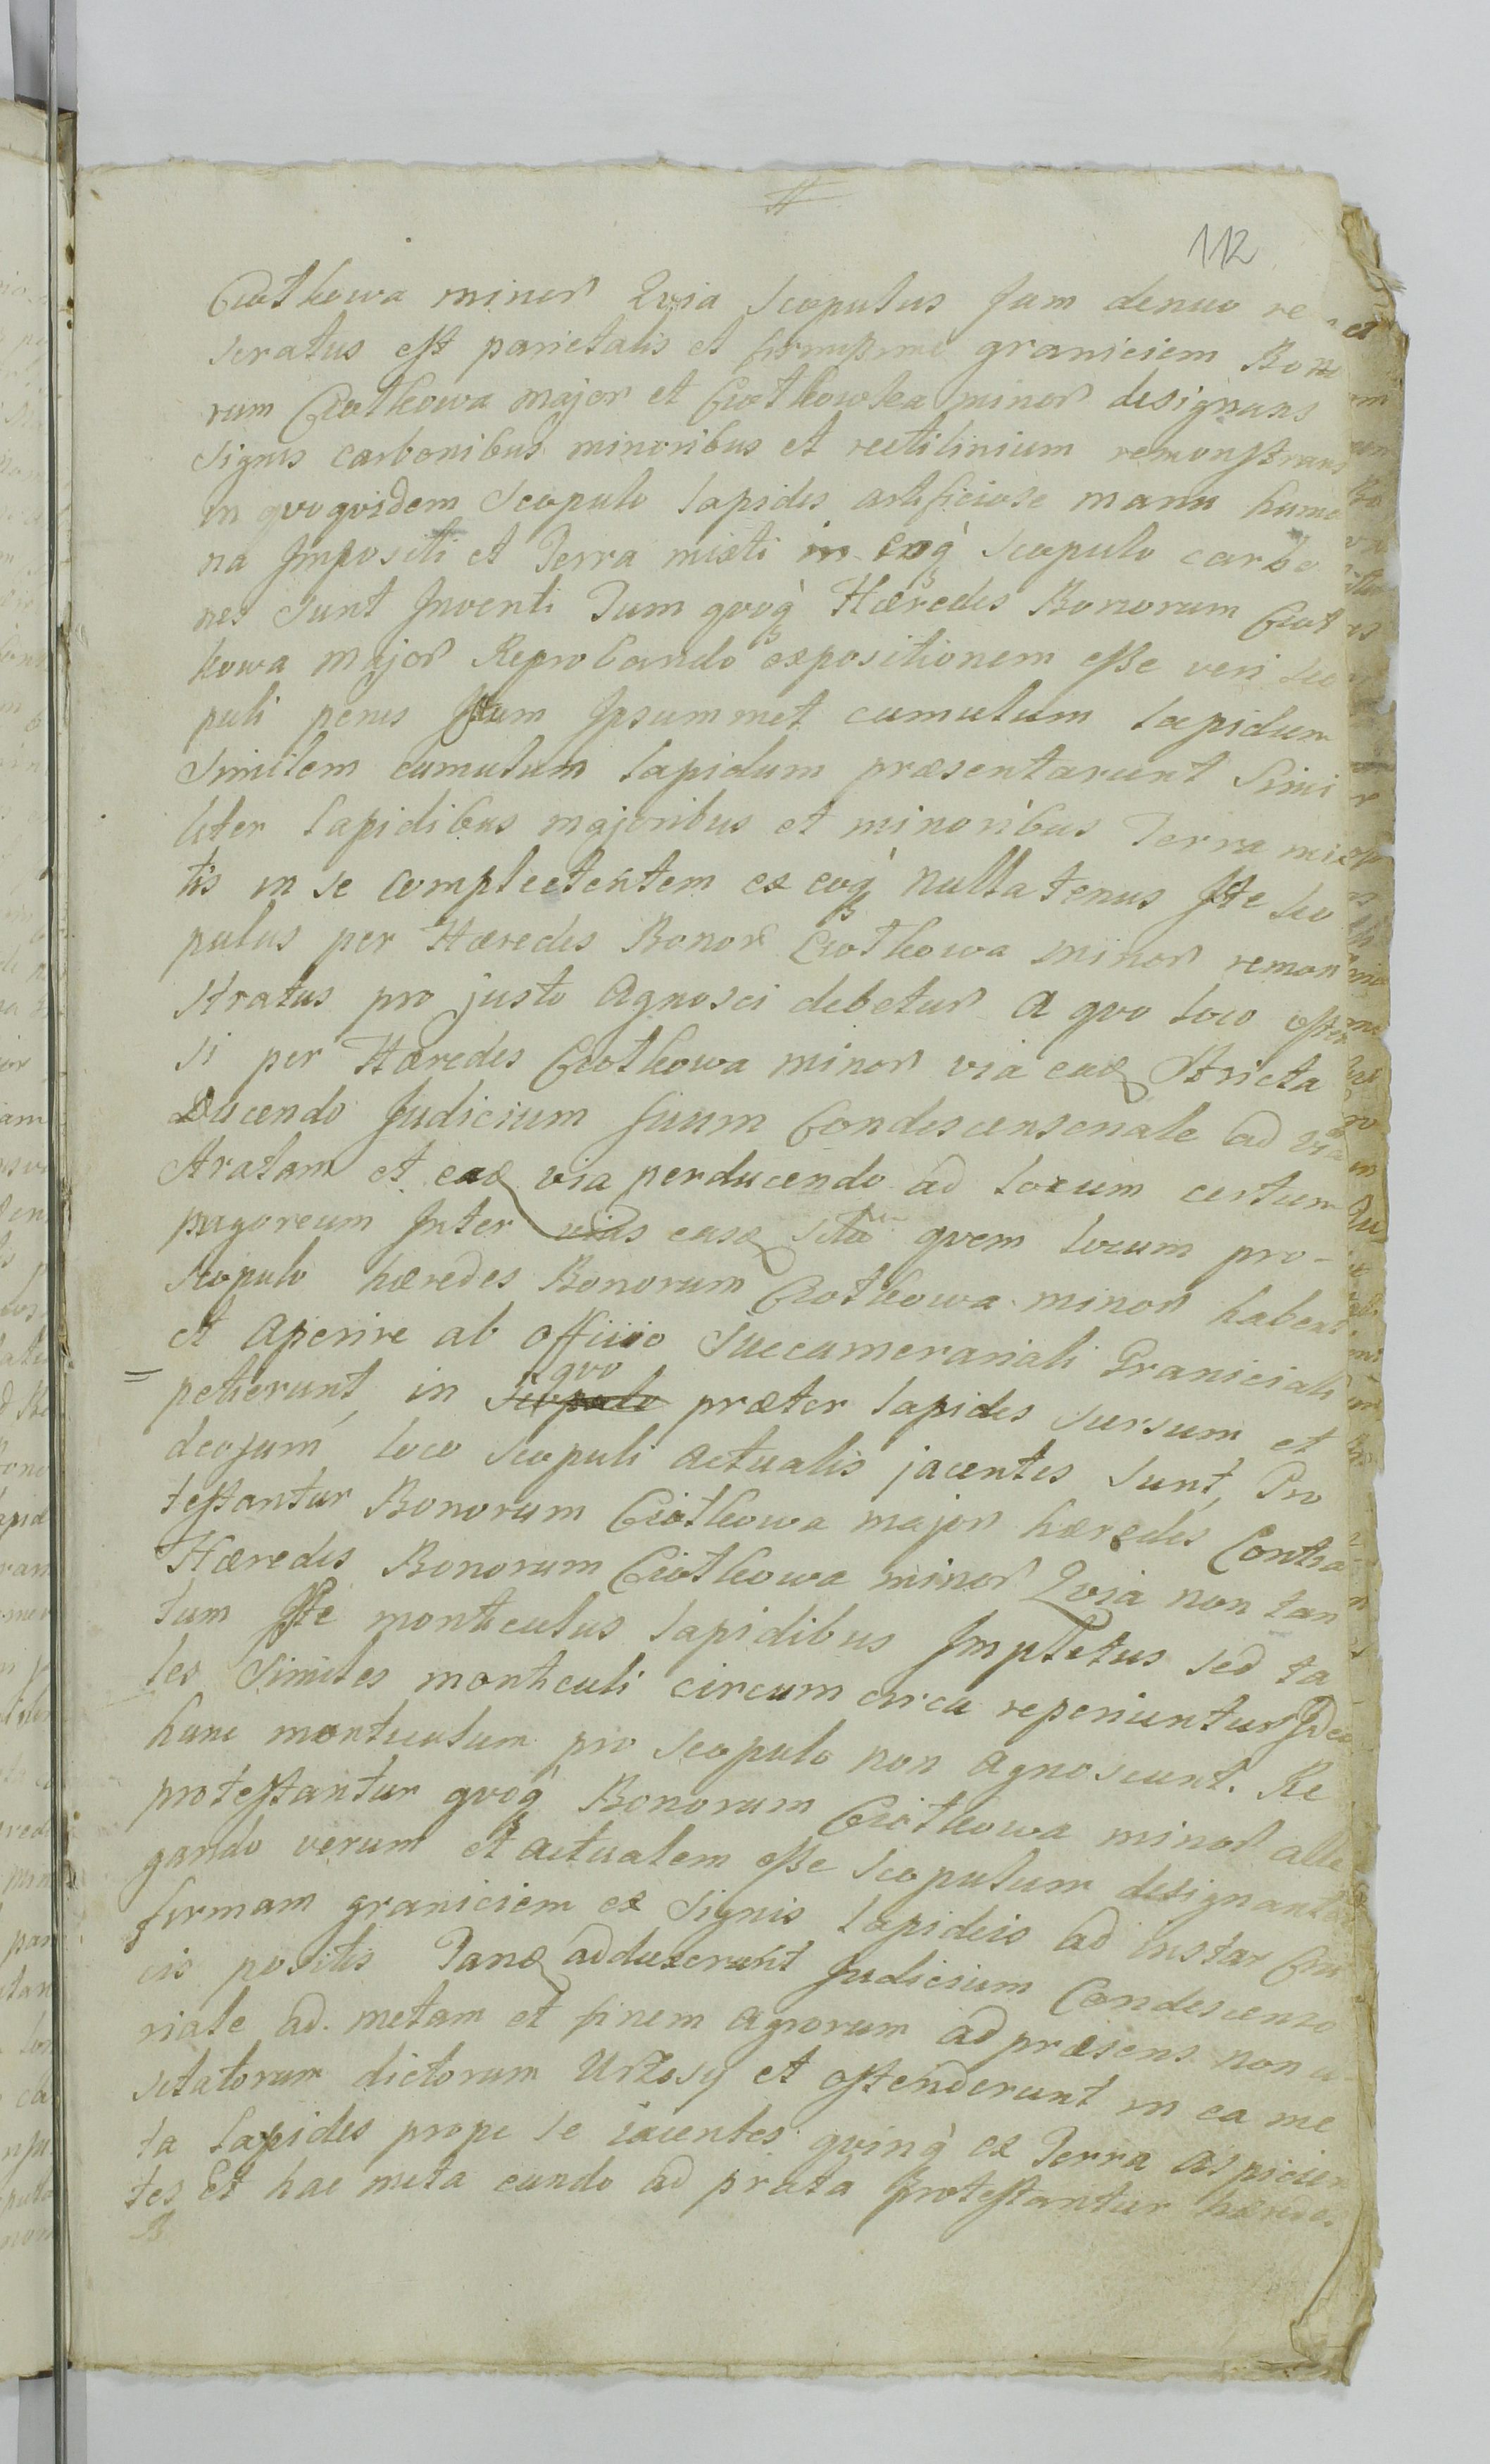 112
Ciotkowa minor Qvia Scopulus Jam denuo re
seratus est parietalis et firmissime graniciem Bono
rum Ciotkowa major et Ciotkowka minor designans
Signis carbonibus minoribus et rectilinium remonstrans
in qvoqvidem Scopulo lapides artificiose manu huma
na Impositi et Terra mixti in eoq scopulo carbo
nes sunt Inventi Tum qvoq Hæredes Bonorum Ciot
kowa major Reprobando expositionem esse veri sco
puli penes Istum Ipsummet cumulum lapidum
Similem cumulum lapidum præsentarunt Simi
liter lapidibus majoribus et minoribus Terra mix
tis in se complectentem ex eoq nullatenus Iste sco
pulus per Hæredes Bonor Ciotkowa minor remon
stratus pro justo Agnosci debetur A qvo loco osten
si per Hæredes Ciotkowa minor via ead Stricta
Ducendo Judicium suum Condescensonale ad via
Stratam et ead via perducendo ad locum certum
pagoreum Inter vias easd qvem locum pro-
scopulo hæredes Bonorum Ciotkowa minor habent
et Aperire ab officio Succamerariali Graniciali
petierunt, in qvo præter lapides sursum et
deosum loco scopuli actualis jacentes sunt, Pro
testantur Bonorum Ciotkowa major hæredes Contra
Hæredes Bonorum Ciotkowa minor Qvia non tan
tum Iste monticulus lapidibus Impletus sed ta
les Similes monticuli circum circa reperiuntur Ideo
hunc monticulum pro scopulo non Agnoscunt. Re
protestantur qvoq Bonorum Ciotkowa minor alle
gando verum et actualem esse scopulum designantem
firmam graniciem ex Signis lapideis ad instar Cru
cis positis Tand adduxerunt Judicium Condescenso
riale ad metam et finem agrorum ad præsens non u
sitatorum dictorum Wrzosy et ostenderunt in ea me
ta lapides prope se iacentes qvinq ex Terra aspicien
tes Et hac meta eundo ad prata Protestantur hærede